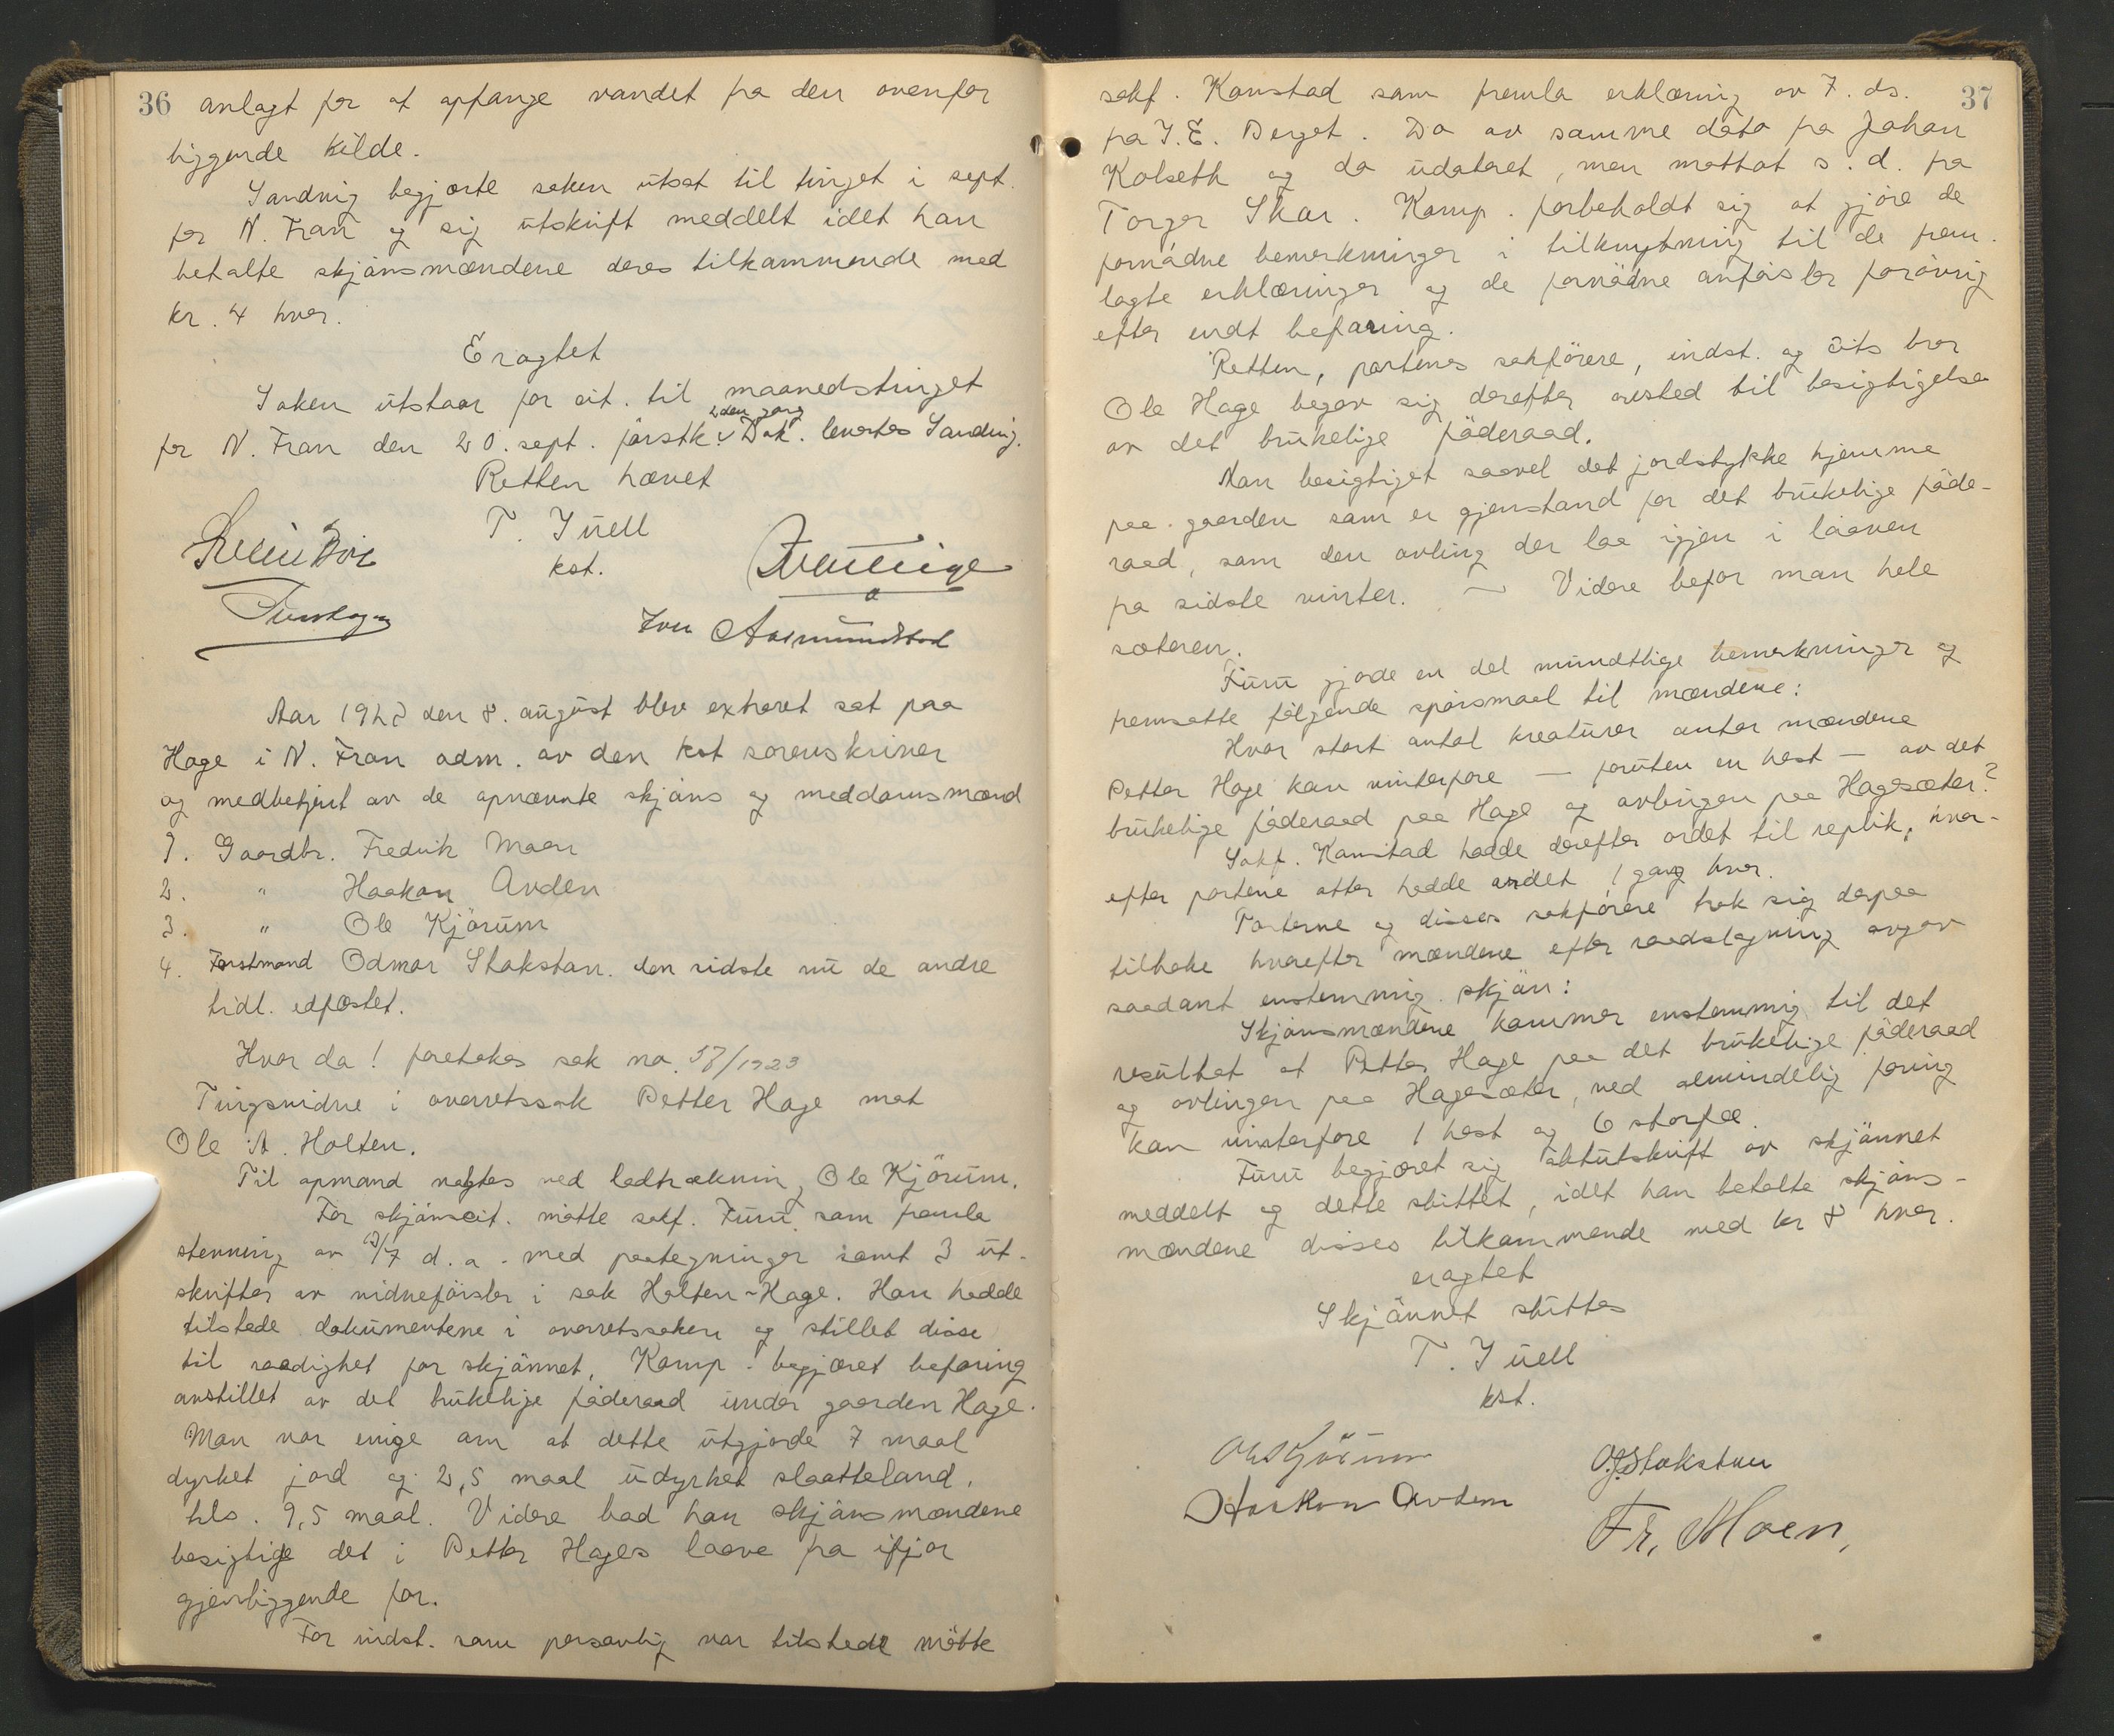 36 anlagt for at opfange vandet fra den ovenfor
liggende kilde.
Sandvig begjærte saken utsat til tinget i sept.
for N. Fron og sig utskrift meddelt idet han
betalte skjönsmændene deres tilkommende med
kr. 4 hver.
Eragtet
Saken utstaar for cit. til maanedstinget
2den gang
for N. Fron den 20. sept. förstk. v Dok. levertes Sandvig.
Retten hævet
T. Juell
kst.
Aar 1923 den 8. august blev extraret sat paa
Hage i N. Fron adm. av den kst sorenskriver
og medbetjent av de opnævnte skjöns og meddomsmænd
1. Gaardbr. Fredrik Moen
2. " Haakon Avdem
3. " Ole Kjörum
4. Forstmand Odmar Stakston. den sidste nu de andre
tidl. edfæstet.
Hvor da! foretokes sak no. 57/1923
Tingsvidne i overretssak Petter Hage mot
Ole A. Holten.
Til opmand valgtes ved lodtrækning Ole Kjörum.
For skjönscit. mötte sakf. Furu som fremla
stevning av 13/7 d. a. med paategninger samt 3 ut-
skrifter av vidneförsler i sak Holten-Hage. Han hadde
tilstede dokumentene i overretssaken og stillet disse
til raadighet for skjönnet. Komp. begjæret befaring
anstillet av det brukelige föderaad under gaarden Hage.
Man var enige om at dette utgjorde 7 maal
dyrket jord og 2,5 maal udyrket slaatteland.
tils. 9,5 maal. Videre bad han skjönsmændene
besigtige det i Petter Hages laave fra ifjor
gjenliggende for.
For indst. som personlig var tilstede mötte
37
sakf. Konstad som fremla erklæring av 7. ds.
fra J. E. Berget. Do av samme dato fra Johan
Kolseth og do udateret, men mottat s. d. fra
Torger Skar. Komp. forbeholdt sig at gjöre de
fornödne bemerkninger i tilknytning til de frem-
lagte erklæringer og de fornödne anförsler forövrig
efter endt befaring.
Retten, partenes sakförere, indst. og cits bror
Ole Hage begav sig derefter avsted til besigtigelse
av det brukelige föderaad.
Man besigtiget saavel det jordstykke hjemme
paa gaarden som er gjenstand for det brukelige föde-
raad, som den avling der laa igjen i laaven
fra sidste vinter. — Videre befor man hele
sæteren.
Furu gjorde en del mundtlige bemerkninger og
fremsatte fölgende spörsmaal til mændene:
Hvor stort antal kreaturer antar mændene
Petter Hage kan vinterfore — foruten en hest — av det
brukelige föderaad paa Hage og avlingen paa Hagesæter?
Sakf. Konstad hadde derefter ordet til replik, hvor-
efter partene atter hadde ordet 1 gang hver.
Parterne og disses sakförere trak sig derpaa
tilbake hvorefter mændene efter raadslagning avgav
saadant enstemmig skjön:
Skjönsmændene kommer enstemmig til det
resultat at Petter Hage paa det brukelige föderaad
og avlingen paa Hagesæter, ved almindelig foring
kan vinterfore 1 hest og 6 storfæ.
Furu begjæret sig aktutskrift av skjönnet
meddelt og dette sluttet, idet han betalte skjöns-
mændene disses tilkommende med kr 8 hver.
eragtet
Skjönnet sluttes
T. Juell
kst.
Ole Kjörum
O. Stakston
Haakon Avdem
Fr. Moen,